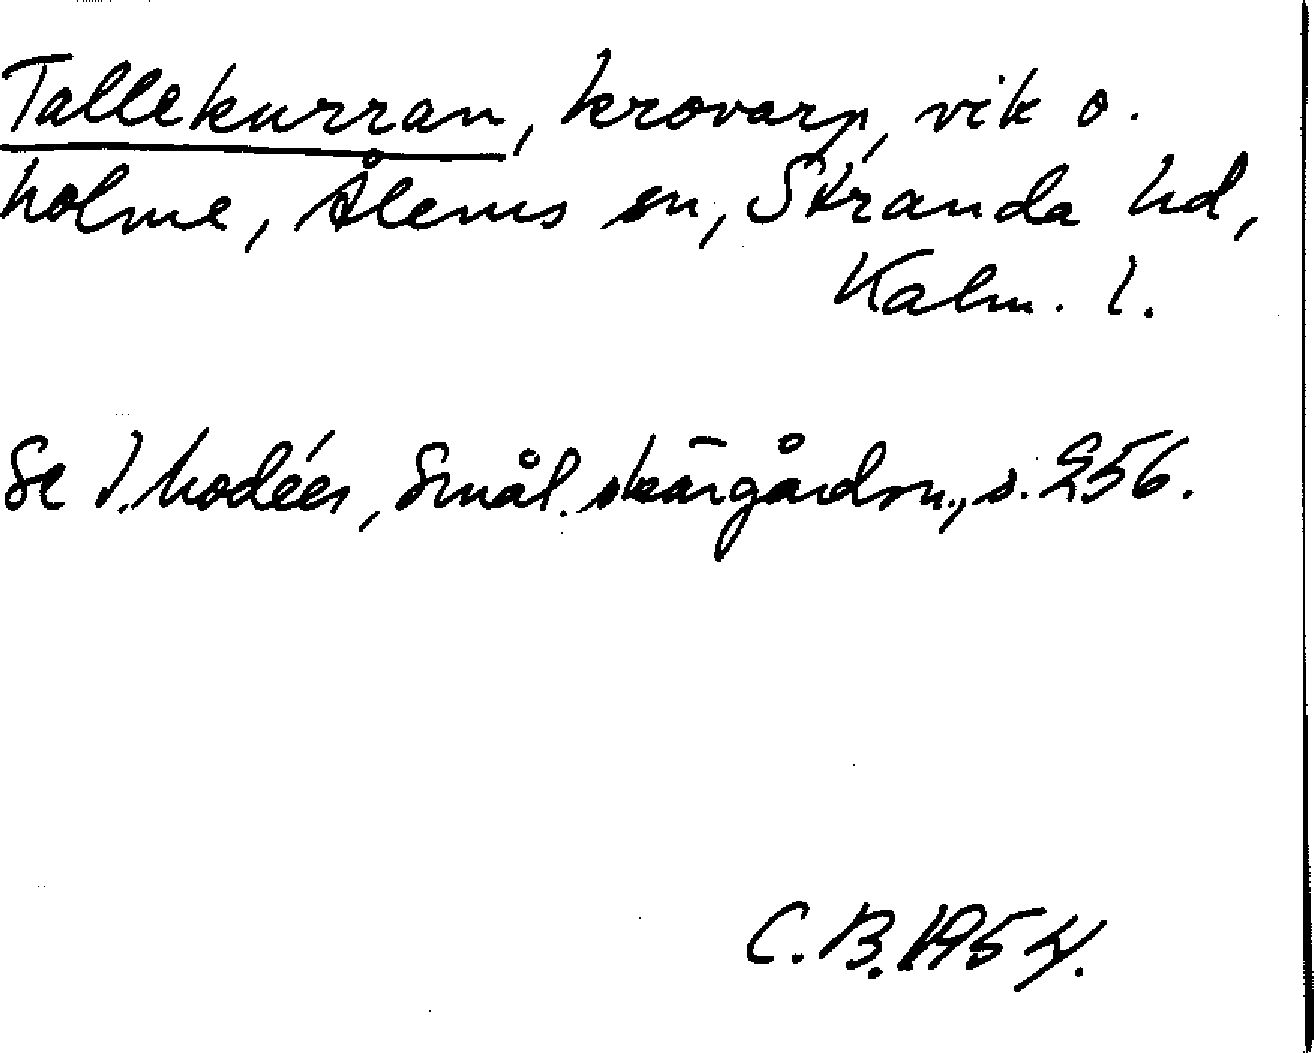 Tallekurran, krovarp, vik o.
holme, Ålems sn, Stranda hd,
Kalm. l.
Se I. Modéer, Smål. skärgårdsn., s. 256.
C. B. 1954.